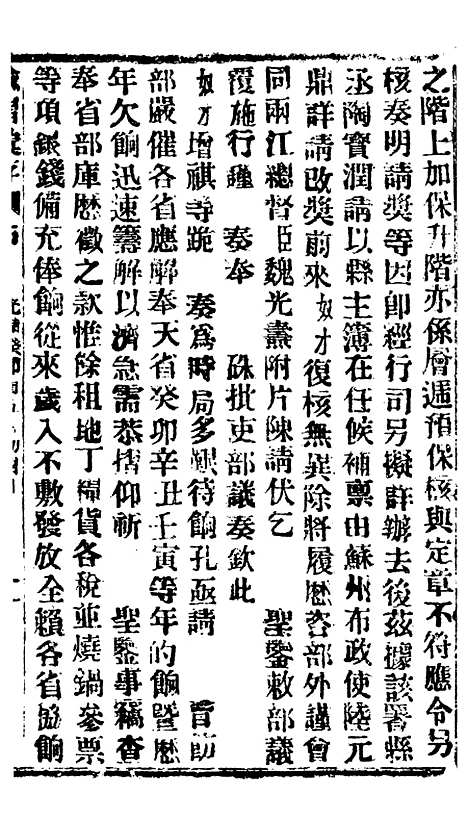 之階上加保升階亦係層遞預保核與定章不符應令另
核奏明請獎等因卽經行司另擬詳辦去後茲據該署縣
丞陶寳潤請以縣主簿在任候補稟由蘇州布政使陸元
鼎詳請改獎前來奴才復核無異除將履歷咨部外謹會
同兩江總督臣魏光燾附片陳請伏乞　聖鑒敕部議
覆施行謹　奏奉　硃批吏部議奏欽此
奴才增祺等跪　奏爲時局多艱待餉孔亟請　旨飭
部嚴催各省應解奉天省癸卯辛丑壬寅等年的餉暨歷
年欠餉迅速籌解以濟急需恭摺仰祈　聖鑒事竊查
奉省部庫歷徵之款惟餘租地丁糧貨各稅並燒鍋參票
等項銀錢備充俸餉從來歲入不敷發放全賴各省協餉
光緖癸卯